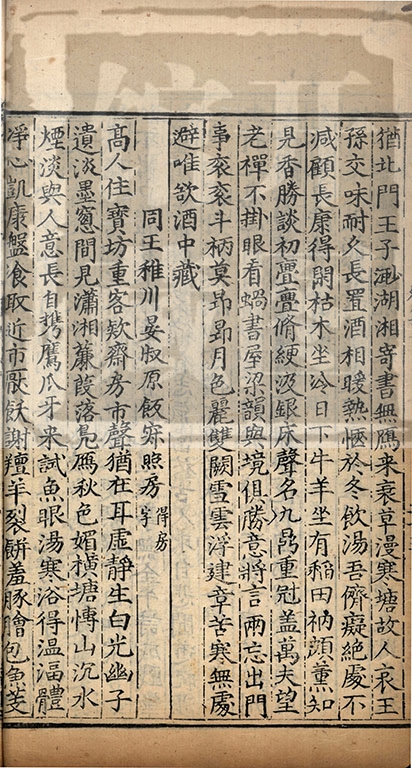 猶北門王子渺湖湘寄書無鴈来衰草漫寒塘故人哀王
孫交味耐久長置酒相暖熱愜於冬飲湯吾儕癡絶處不
减顧長康得閑枯木坐冷日下牛羊坐有稻田衲頗薰知
見香勝談初亹亹脩綆汲銀床聲名九鼎重冠盖萬夫望
老禪不掛眼看蝸書屋梁韻與境俱勝意將言兩忘出門
事衮衮斗柄莫昂昂月色麗雙闕雪雲浮建章苦寒無處
避唯欲酒中藏
同王稚川晏叔原飯寂照房得房字
高人住寶坊重客欵齋房市聲猶在耳虛静生白光幽子
遺淡墨窻間見瀟湘蒹葭落鳧鴈秋色媚橫塘博山沉水
煙淡與人意長自携鷹爪牙来試魚眼湯寒浴得温湢體
凈心凱康盤飡取近市厭飫謝羶羊裂餅羞豚膾包魚芰